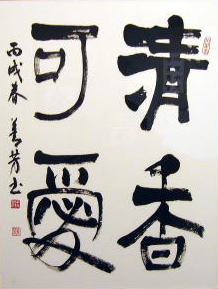 清香
可愛
丙戌春 善芳书